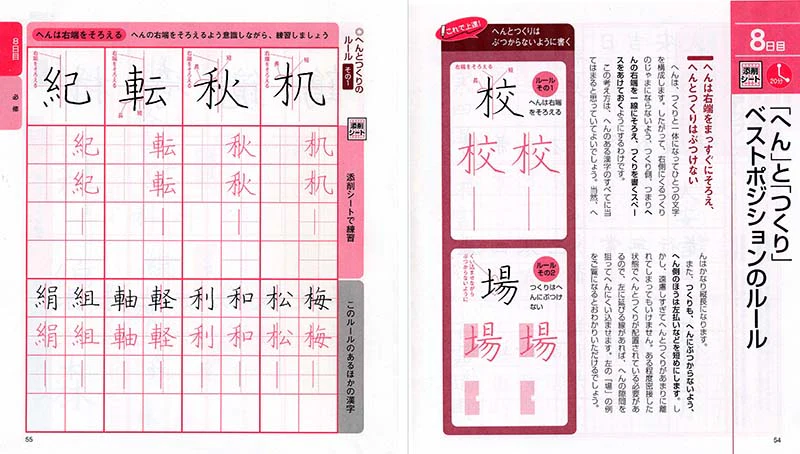 8日目
添削シート
20分
「へん」と「つくり」
ベストポジションのルール
へんは右端をまっすぐにそろえ、
へんとつくりはぶつけない
へんは、つくりと一体になってひとつの文字
を構成します。したがって、右側にくるつくり
のじゃまにならないよう、つくり側、つまりへ
んの右端を一線にそろえ、つくりを書くスペー
スをあけておくようにするわけです。
この考え方は、へんのある漢字のすべてに当
てはまると思っていてよいでしょう。当然、へ
んはかなり縦長になります。
また、つくりも、へんにぶつからないよう、
へん側のほうは左払いなどを短めにします。し
かし、遠慮しすぎてへんとつくりがあまりに離
れてしまってもいけません。ある程度密接した
状態でへんとつくりが配置されている必要があ
るので、左に延びる線があれば、へんの隙間を
狙ってへんにくい込ませます。左の「場」の例
をご覧になるとおわかりいただけるでしょう。
これで上達!
へんとつくりは
ぶつからないように書く
ルール
その1
へんは右端
をそろえる
右端をそろえる
校
校 校
ルール
その2
つくりはへ
んにぶつけ
ない
くい込ませながら
ぶつからないように
場
場 場
54
8日目
必修
◎へんとつくりの
ルール その1
へんは右端をそろえる
へんの右端をそろえるよう意識しながら、練習しましょう
机 秋 転 紀
右端をそろえる
右端をそろえる
右端をそろえる
右端をそろえる
短
長
添削シート
添削シートで練習
机 秋 転 紀
机 秋 転 紀
このルールのあるほかの漢字
梅 松 和 利 軽 軸 組 絹
梅 松 和 利 軽 軸 組 絹
55